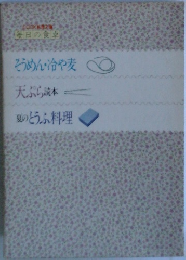 毎日の食卓
そうめん・冷や麦
天ぷら読本
夏のとうふ料理